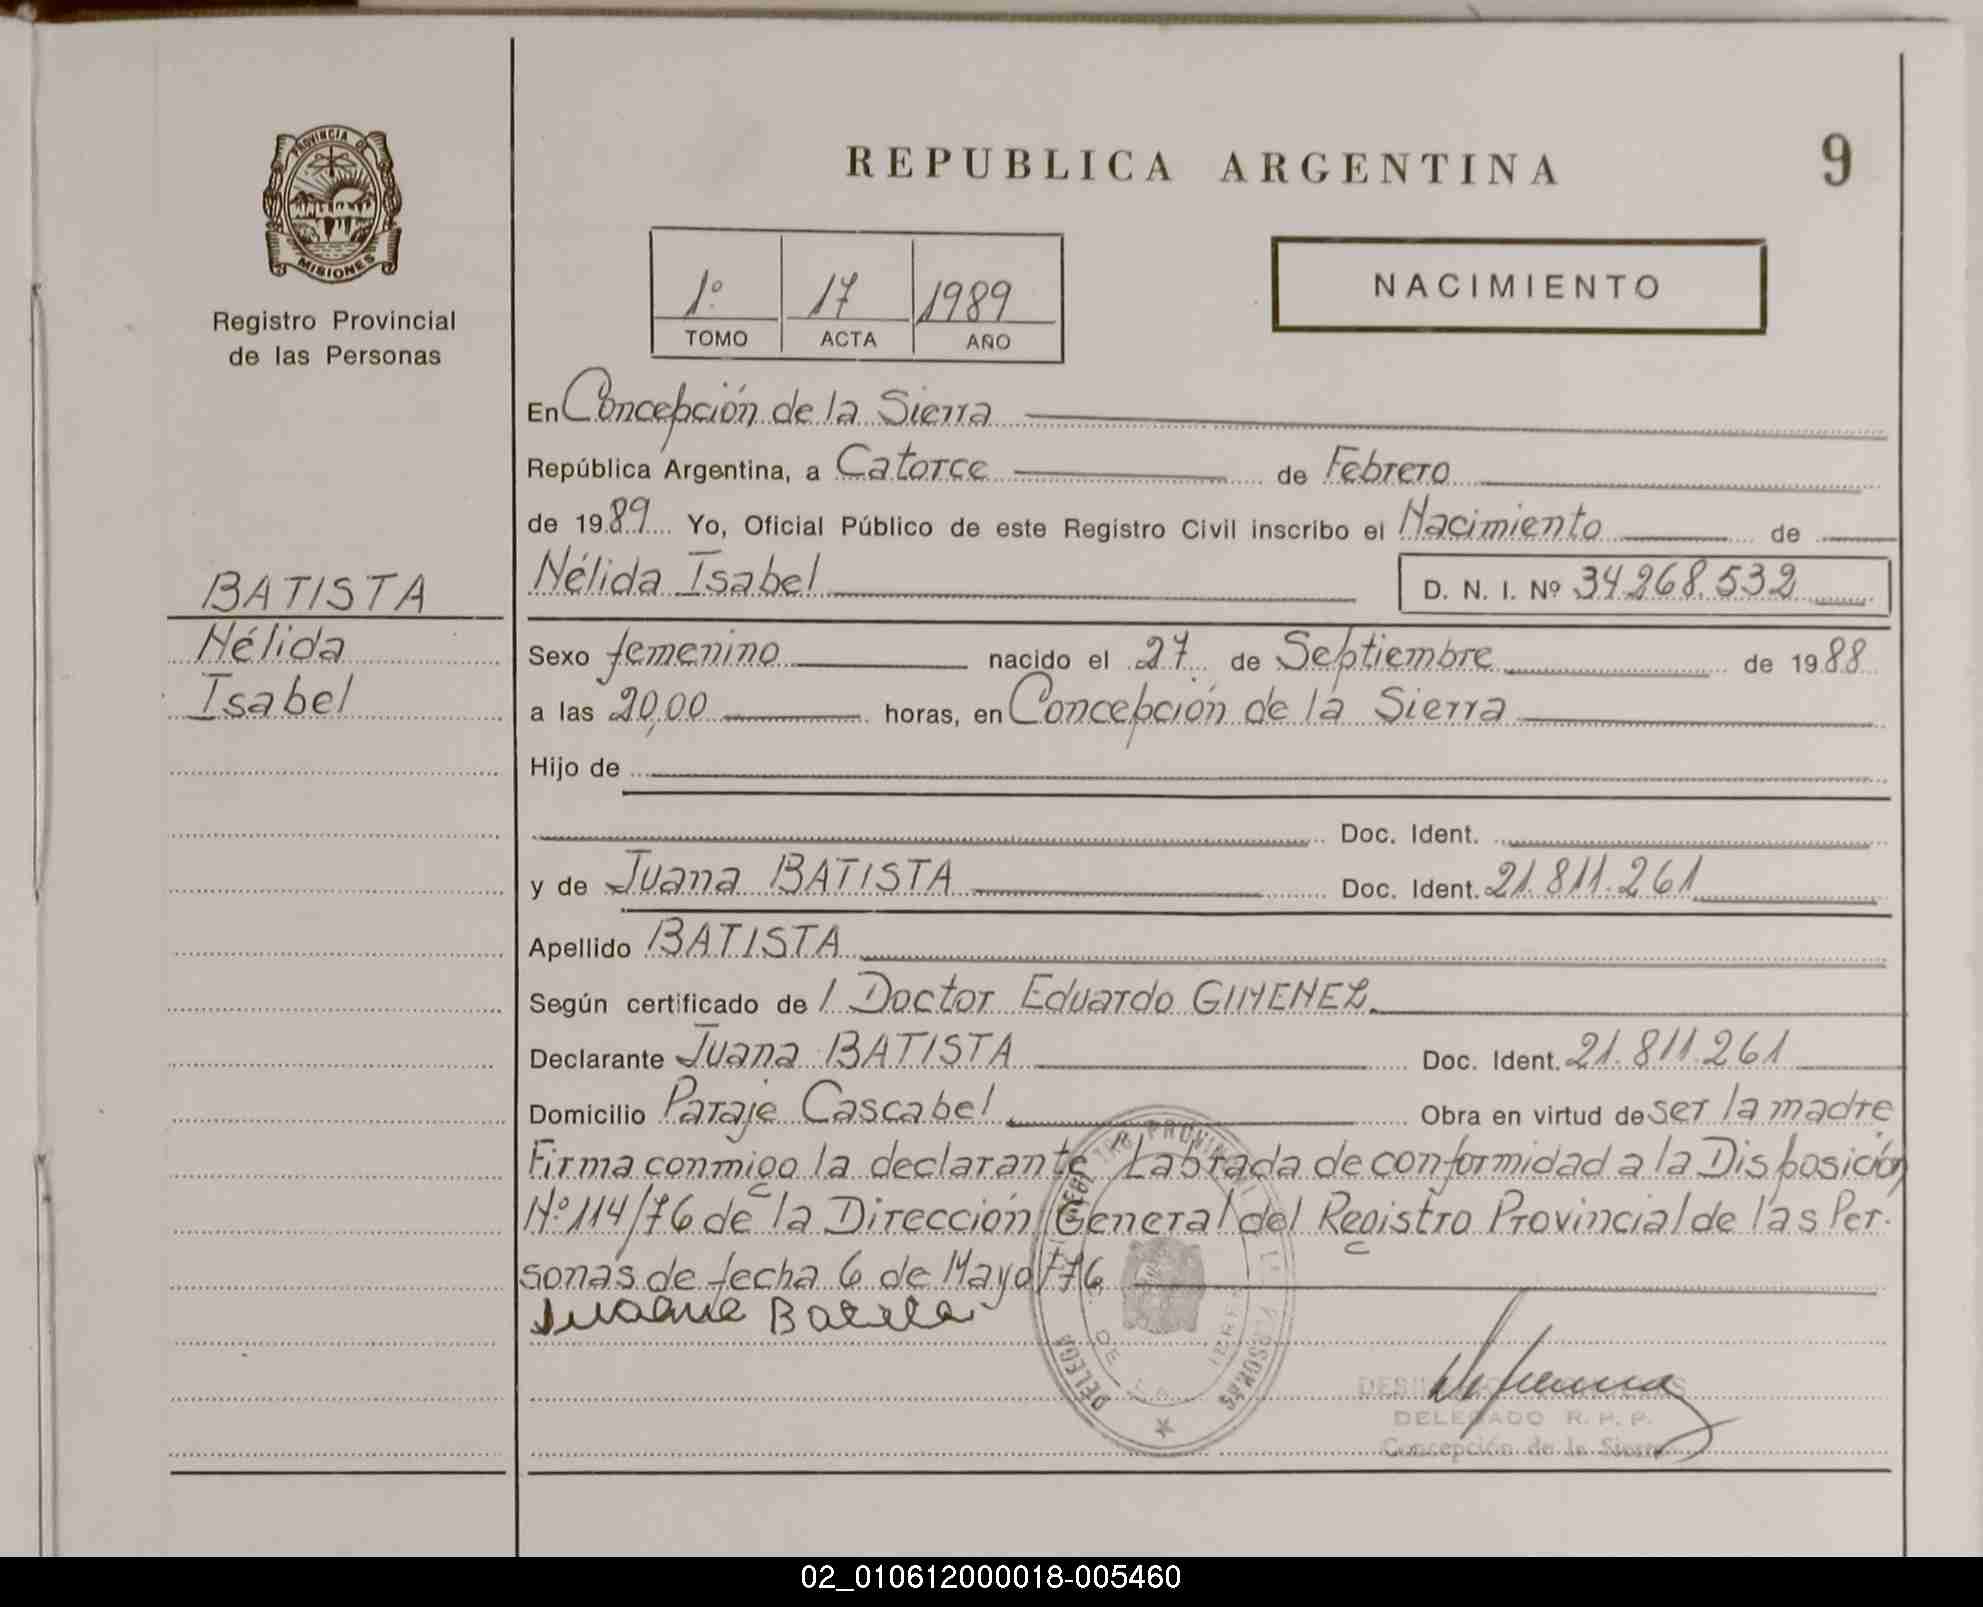 PROVINCIA DE
MISIONES
Registro Provincial
de las Personas
REPUBLICA ARGENTINA
9
1º 17 1989
TOMO ACTA AÑO
NACIMIENTO
En Concepción de la Sierra
República Argentina, a Catorce de Febrero
de 1989 Yo, Oficial Público de este Registro Civil inscribo el Nacimiento de
Nélida Isabel D. N. I. Nº 34.268.532
BATISTA
Nélida
Isabel
Sexo femenino nacido el 27 de Septiembre de 1988
a las 20,00 horas, en Concepción de la Sierra
Hijo de
Doc. Ident.
y de Juana BATISTA Doc. Ident. 21.811.261
Apellido BATISTA
Según certificado de l Doctor Eduardo GIMENEZ
Declarante Juana BATISTA Doc. Ident. 21.811.261
Domicilio Paraje Cascabel Obra en virtud de ser la madre
Firma conmigo la declarante Labrada de conformidad a la Disposición
Nº 114/76 de la Dirección General del Registro Provincial de las Per.
sonas de fecha 6 de Mayo/76
DELEGADO R. P. P.
Concepción de la Sierra
02_010612000018-005460